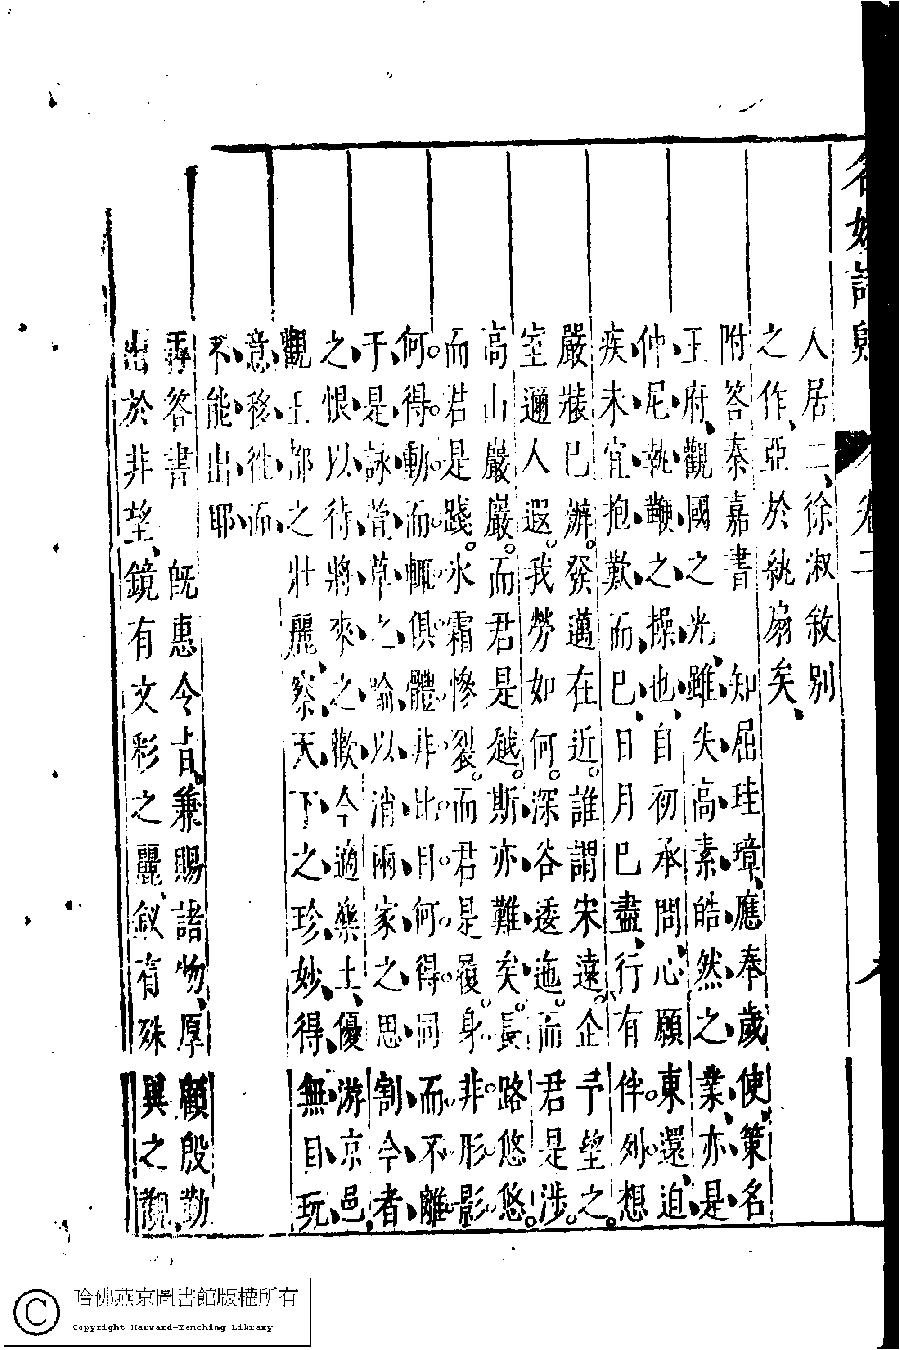 名媛詩歸
卷二
人居二徐淑敘別
之作亞於紈扇矣
附答秦嘉書 知屈珪璋應奉歲使策名
王府觀國之光雖失高素皓然之業亦是
仲尼執鞭之操也自初承問心願東還迫
疾未宜抱歎而已日月已盡行有伴例想
嚴裝已辦發邁在近誰謂宋遠企予望之
室邇人遐我勞如何深谷逶迤而君是涉
高山巖巖而君是越斯亦難矣長路悠悠
而君是踐冰霜慘裂而君是履身非形影
何得動而輒俱體非比目何得同而不離
于是詠萱草之喻以消兩家之思割今者
之恨以待將來之歡今適樂土優游京邑
觀王都之壯麗察天下之珍妙得無目玩
意移往而
不能出耶
再答書 既惠令音兼賜諸物厚顧殷勤
出於非望鏡有文彩之麗釵有殊異之觀
哈佛燕京圖書館版權所有
Copyright Harvard-Yenching Library